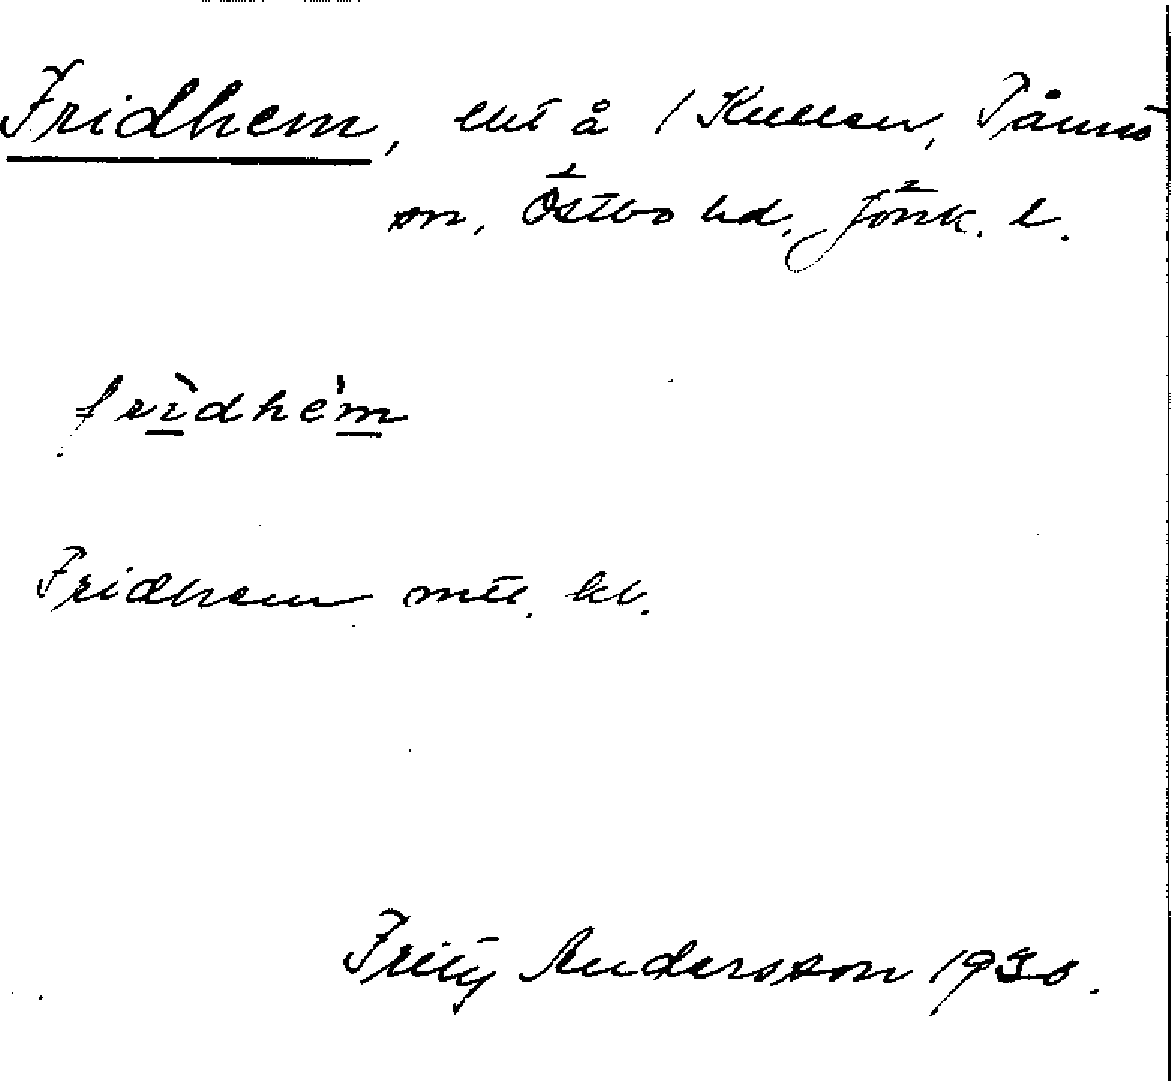 Fridhem, lht å 1 Kullen, Tånnö
sn, Östbo hd, Jönk. l.
frìdhém
Fridhem mtl. kb.
Fritz Andersson 1930.